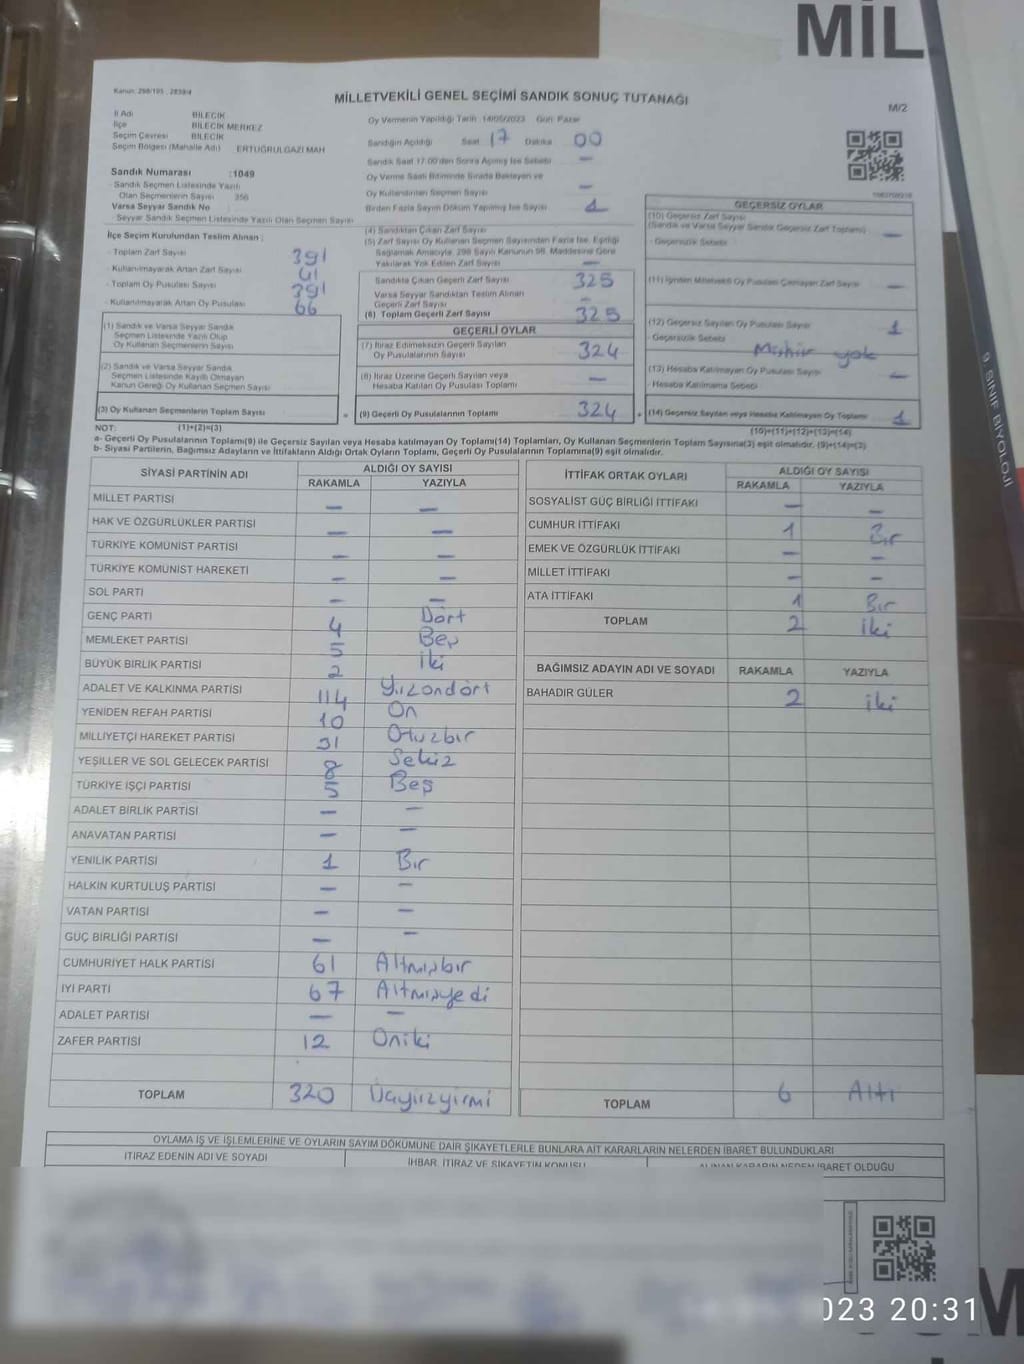 MİL
Kanun: 298/105 , 2839/4
MİLLETVEKİLİ GENEL SEÇİMİ SANDIK SONUÇ TUTANAĞI
M/2
İl Adı BİLECİK
İlçe BİLECİK MERKEZ
Seçim Çevresi BİLECİK
Seçim Bölgesi (Mahalle Adı) ERTUĞRULGAZİ MAH
Oy Vermenin Yapıldığı Tarih 14/05/2023 Gün: Pazar
Sandığın Açıldığı Saat 17 Dakika 00
Sandık Saat 17:00'den Sonra Açılmış İse Sebebi –
Oy Verme Saati Bitiminde Sırada Bekleyen ve
Oy Kullandırılan Seçmen Sayısı –
Birden Fazla Sayım Döküm Yapılmış İse Sayısı 1
Sandık Numarası :1049
- Sandık Seçmen Listesinde Yazılı
Olan Seçmenlerin Sayısı 356
Varsa Seyyar Sandık No
- Seyyar Sandık Seçmen Listesinde Yazılı Olan Seçmen Sayısı
İlçe Seçim Kurulundan Teslim Alınan :
- Toplam Zarf Sayısı 391
- Kullanılmayarak Artan Zarf Sayısı
- Toplam Oy Pusulası Sayısı 391
- Kullanılmayarak Artan Oy Pusulası 66
(1) Sandık ve Varsa Seyyar Sandık
Seçmen Listesinde Yazılı Olup
Oy Kullanan Seçmenlerin Sayısı
(2) Sandık ve Varsa Seyyar Sandık
Seçmen Listesinde Kayıtlı Olmayan
Kanun Gereği Oy Kullanan Seçmen Sayısı
(3) Oy Kullanan Seçmenlerin Toplam Sayısı
(4) Sandıktan Çıkan Zarf Sayısı
(5) Zarf Sayısı Oy Kullanan Seçmen Sayısından Fazla İse, Eşitliği
Sağlamak Amacıyla, 298 Sayılı Kanunun 98. Maddesine Göre
Yakılarak Yok Edilen Zarf Sayısı –
Sandıkta Çıkan Geçerli Zarf Sayısı 325
Varsa Seyyar Sandıktan Teslim Alınan
Geçerli Zarf Sayısı –
(6) Toplam Geçerli Zarf Sayısı 325
GEÇERLİ OYLAR
(7) İtiraz Edilmeksizin Geçerli Sayılan
Oy Pusulalarının Sayısı 324
(8) İtiraz Üzerine Geçerli Sayılan veya
Hesaba Katılan Oy Pusulası Toplamı –
= (9) Geçerli Oy Pusulalarının Toplamı 324 +
GEÇERSİZ OYLAR
(10) Geçersiz Zarf Sayısı
(Sandık ve Varsa Seyyar Sandık Geçersiz Zarf Toplamı) –
- Geçersizlik Sebebi
(11) İçinden Milletvekili Oy Pusulası Çıkmayan Zarf Sayısı –
(12) Geçersiz Sayılan Oy Pusulası Sayısı 1
- Geçersizlik Sebebi Mühür yok
(13) Hesaba Katılmayan Oy Pusulası Sayısı –
- Hesaba Katılmama Sebebi
(14) Geçersiz Sayılan veya Hesaba Katılmayan Oy Toplamı 1
NOT: (1)+(2)=(3) (10)+(11)+(12)+(13)=(14)
a- Geçerli Oy Pusulalarının Toplamı(9) ile Geçersiz Sayılan veya Hesaba katılmayan Oy Toplamı(14) Toplamları, Oy Kullanan Seçmenlerin Toplam Sayısına(3) eşit olmalıdır. (9)+(14)=(3)
b- Siyasi Partilerin, Bağımsız Adayların ve İttifakların Aldığı Ortak Oyların Toplamı, Geçerli Oy Pusulalarının Toplamına(9) eşit olmalıdır.
SİYASİ PARTİNİN ADI ALDIĞI OY SAYISI
RAKAMLA YAZIYLA
MİLLET PARTİSİ – –
HAK VE ÖZGÜRLÜKLER PARTİSİ – –
TÜRKİYE KOMÜNİST PARTİSİ – –
TÜRKİYE KOMÜNİST HAREKETİ – –
SOL PARTİ – –
GENÇ PARTİ 4 Dört
MEMLEKET PARTİSİ 5 Beş
BÜYÜK BİRLİK PARTİSİ 2 İki
ADALET VE KALKINMA PARTİSİ 114 Yüzondört
YENİDEN REFAH PARTİSİ 10 On
MİLLİYETÇİ HAREKET PARTİSİ 31 Otuzbir
YEŞİLLER VE SOL GELECEK PARTİSİ 8 Sekiz
TÜRKİYE İŞÇİ PARTİSİ 5 Beş
ADALET BİRLİK PARTİSİ – –
ANAVATAN PARTİSİ – –
YENİLİK PARTİSİ 1 Bir
HALKIN KURTULUŞ PARTİSİ – –
VATAN PARTİSİ – –
GÜÇ BİRLİĞİ PARTİSİ – –
CUMHURİYET HALK PARTİSİ 61 Altmışbir
İYİ PARTİ 67 Altmışyedi
ADALET PARTİSİ – –
ZAFER PARTİSİ 12 Oniki
TOPLAM 320 Üçyüzyirmi
İTTİFAK ORTAK OYLARI ALDIĞI OY SAYISI
RAKAMLA YAZIYLA
SOSYALİST GÜÇ BİRLİĞİ İTTİFAKI – –
CUMHUR İTTİFAKI 1 Bir
EMEK VE ÖZGÜRLÜK İTTİFAKI – –
MİLLET İTTİFAKI – –
ATA İTTİFAKI 1 Bir
TOPLAM 2 İki
BAĞIMSIZ ADAYIN ADI VE SOYADI RAKAMLA YAZIYLA
BAHADIR GÜLER 2 iki
TOPLAM 6 Altı
OYLAMA İŞ VE İŞLEMLERİNE VE OYLARIN SAYIM DÖKÜMÜNE DAİR ŞİKAYETLERLE BUNLARA AİT KARARLARIN NELERDEN İBARET BULUNDUKLARI
İTİRAZ EDENİN ADI VE SOYADI İHBAR, İTİRAZ VE ŞİKAYETİN KONUSU ALINAN KARARIN NEDEN İBARET OLDUĞU
9. SINIF BİYOLOJİ
023 20:31
M